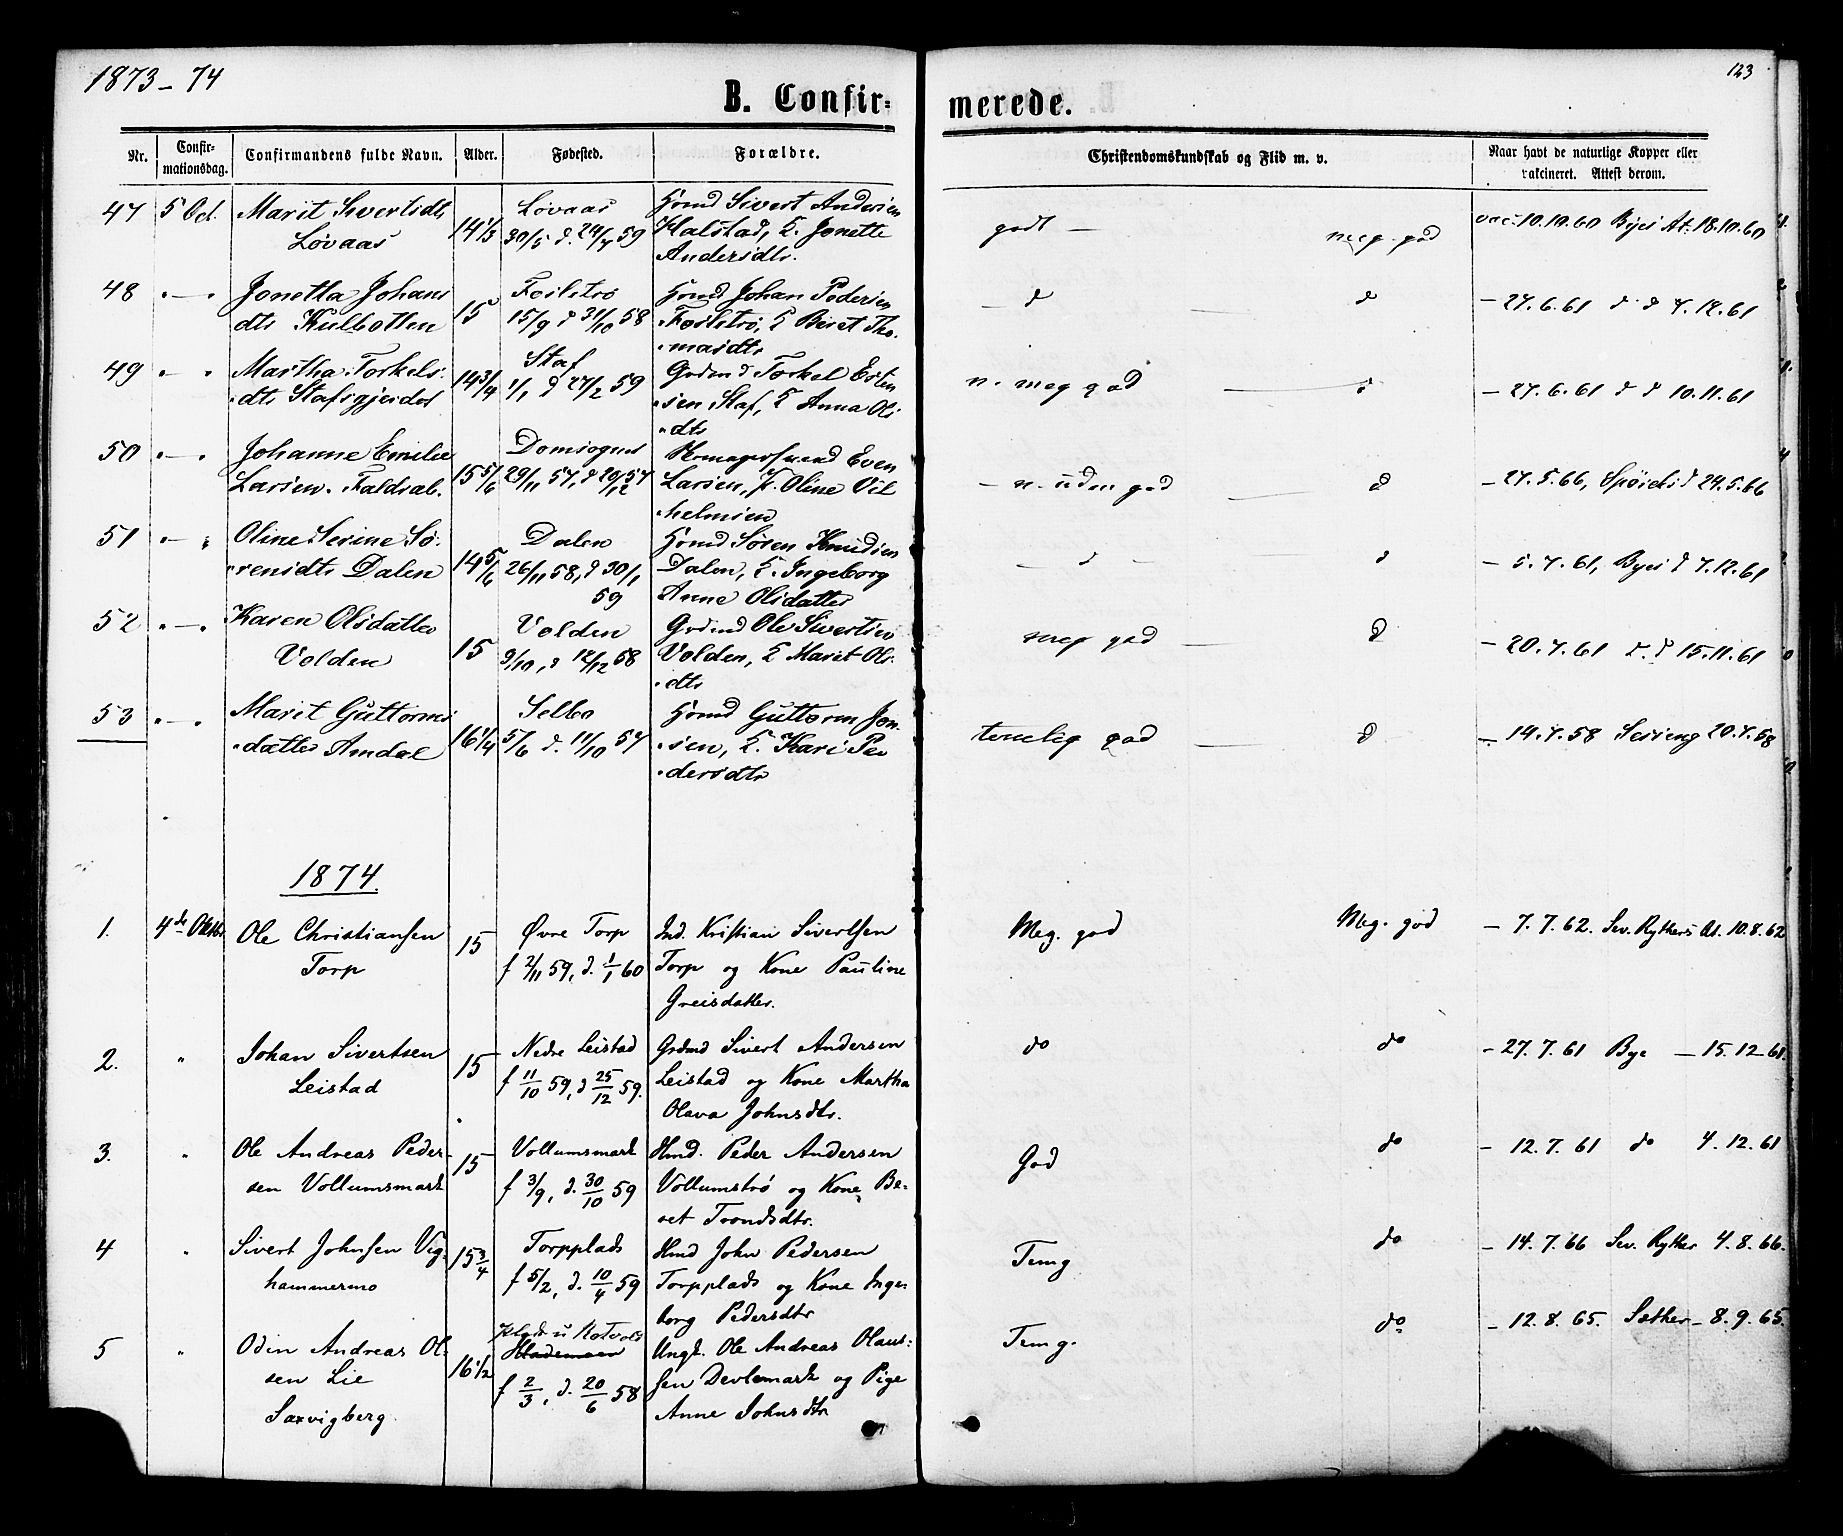 1873-74
123
B. Confirmerede.
Nr. Confirmationsdag. Confirmandens fulde Navn. Alder. Fødested. Forældre. Christendomskundskab og Flid m. v. Naar havt de naturlige Kopper eller vakcineret. Attest derom.
47 5 Oct. Marit Sivertsdtr Løvaas 14 1/3 Løvaas 30/5 d. 24/7 59 Gmd Sivert Andersen Halstad, K. Jonette Andersdtr. godt — meg. god vac. 10.10.60 Byes At. 18.10.60
48 " — " Jonetta Johans dtr Kulbotten 15 Foilstrø 15/9 d 31/10 58 Hmd Johan Pedersen Foilstrø, K Beret Thomasdtr — d d — 27.6.61 d d 7.12.61
49 " — " Martha Torkels dtr Stafsgjerdet 14 3/4 Staf 1/1 d 27/2 59 Gdmd Torkel Estensen Staf, K Anna Olsdtr n. meg god — d — 27.6.61 d d 10.11.61
50 " — " Johanne Emilie Larsen Faldsab. 15 5/6 Domsognet 29/11 57, d 20/12 57 Even Larsen, K. Oline Vilhelmsen — n. uden god — d — 27.5.66, d 29.5.66
51 " — " Oline Serine Sørensdtr Dalen 14 5/6 Dalen 26/11 58, d 30/1 59 Hmd Søren Knudsen Dalen, K. Ingeborg Anne Olsdatter — d — d — 5.7.61, Byes d 7.12.61
52 " — " Karen Olsdatter Volden 15 Volden 9/10, d 12/12 58 Gdmd Ole Sivertsen Volden, K Marit Olsdtr meg god — d — 20.7.61 d. d 15.11.61
53 " — " Marit Guttormsdatter Amdal 16 1/4 Selbo 5/6 d. 11/10 57 Hmd Guttorm Jonsen, K. Kari Pedersdtr temelig god — d — 19.7.58 20.7.58
1874.
1. 4de Oktbr. Ole Christiansen Torp 15 Øvre Torp f 2/11 59, d. 1/1 60 Ind. Kristian Sivertsen Torp og Kone Pauline Greisdatter. Meg. god Meg. god — 7.7.62. Sev. Rythers At. 10.8.62
2. " Johan Sivertsen Leistad 15 Nedre Leistad f 11/10 59, d 25/12 59. Grdmd Sivert Andersen Leistad og Kone Martha Olava Johnsdtr. do do — 27.7.61 Bye — 15.12.61.
3. " Ole Andreas Pedersen Vollumsmark 15 Vollumsmark f 3/9, d. 30/10 59 Hmd. Peder Andersen Vollumstrø og Kone Beret Trondsdtr. God do — 12.7.61 do 4.12.61
4 " Sivert Johnsen Vighammermo 15 3/4 Torpplads f 5/2, d. 10/4 59 Hmd John Pedersen Torpplads og Kone Ingeborg Pedersdtr Temg do — 14.7.66 Sev. Ryther 4.8.66.
5 " Odin Andreas Olsen Lie Saxvigberg. 16 1/2 f 2/3, d. 20/6 58 Ungk. Ole Andreas Olausen Devlemark og Pige Anne Johnsdtr Temg. do — 12.8.65. Sæther — 8.9.65.